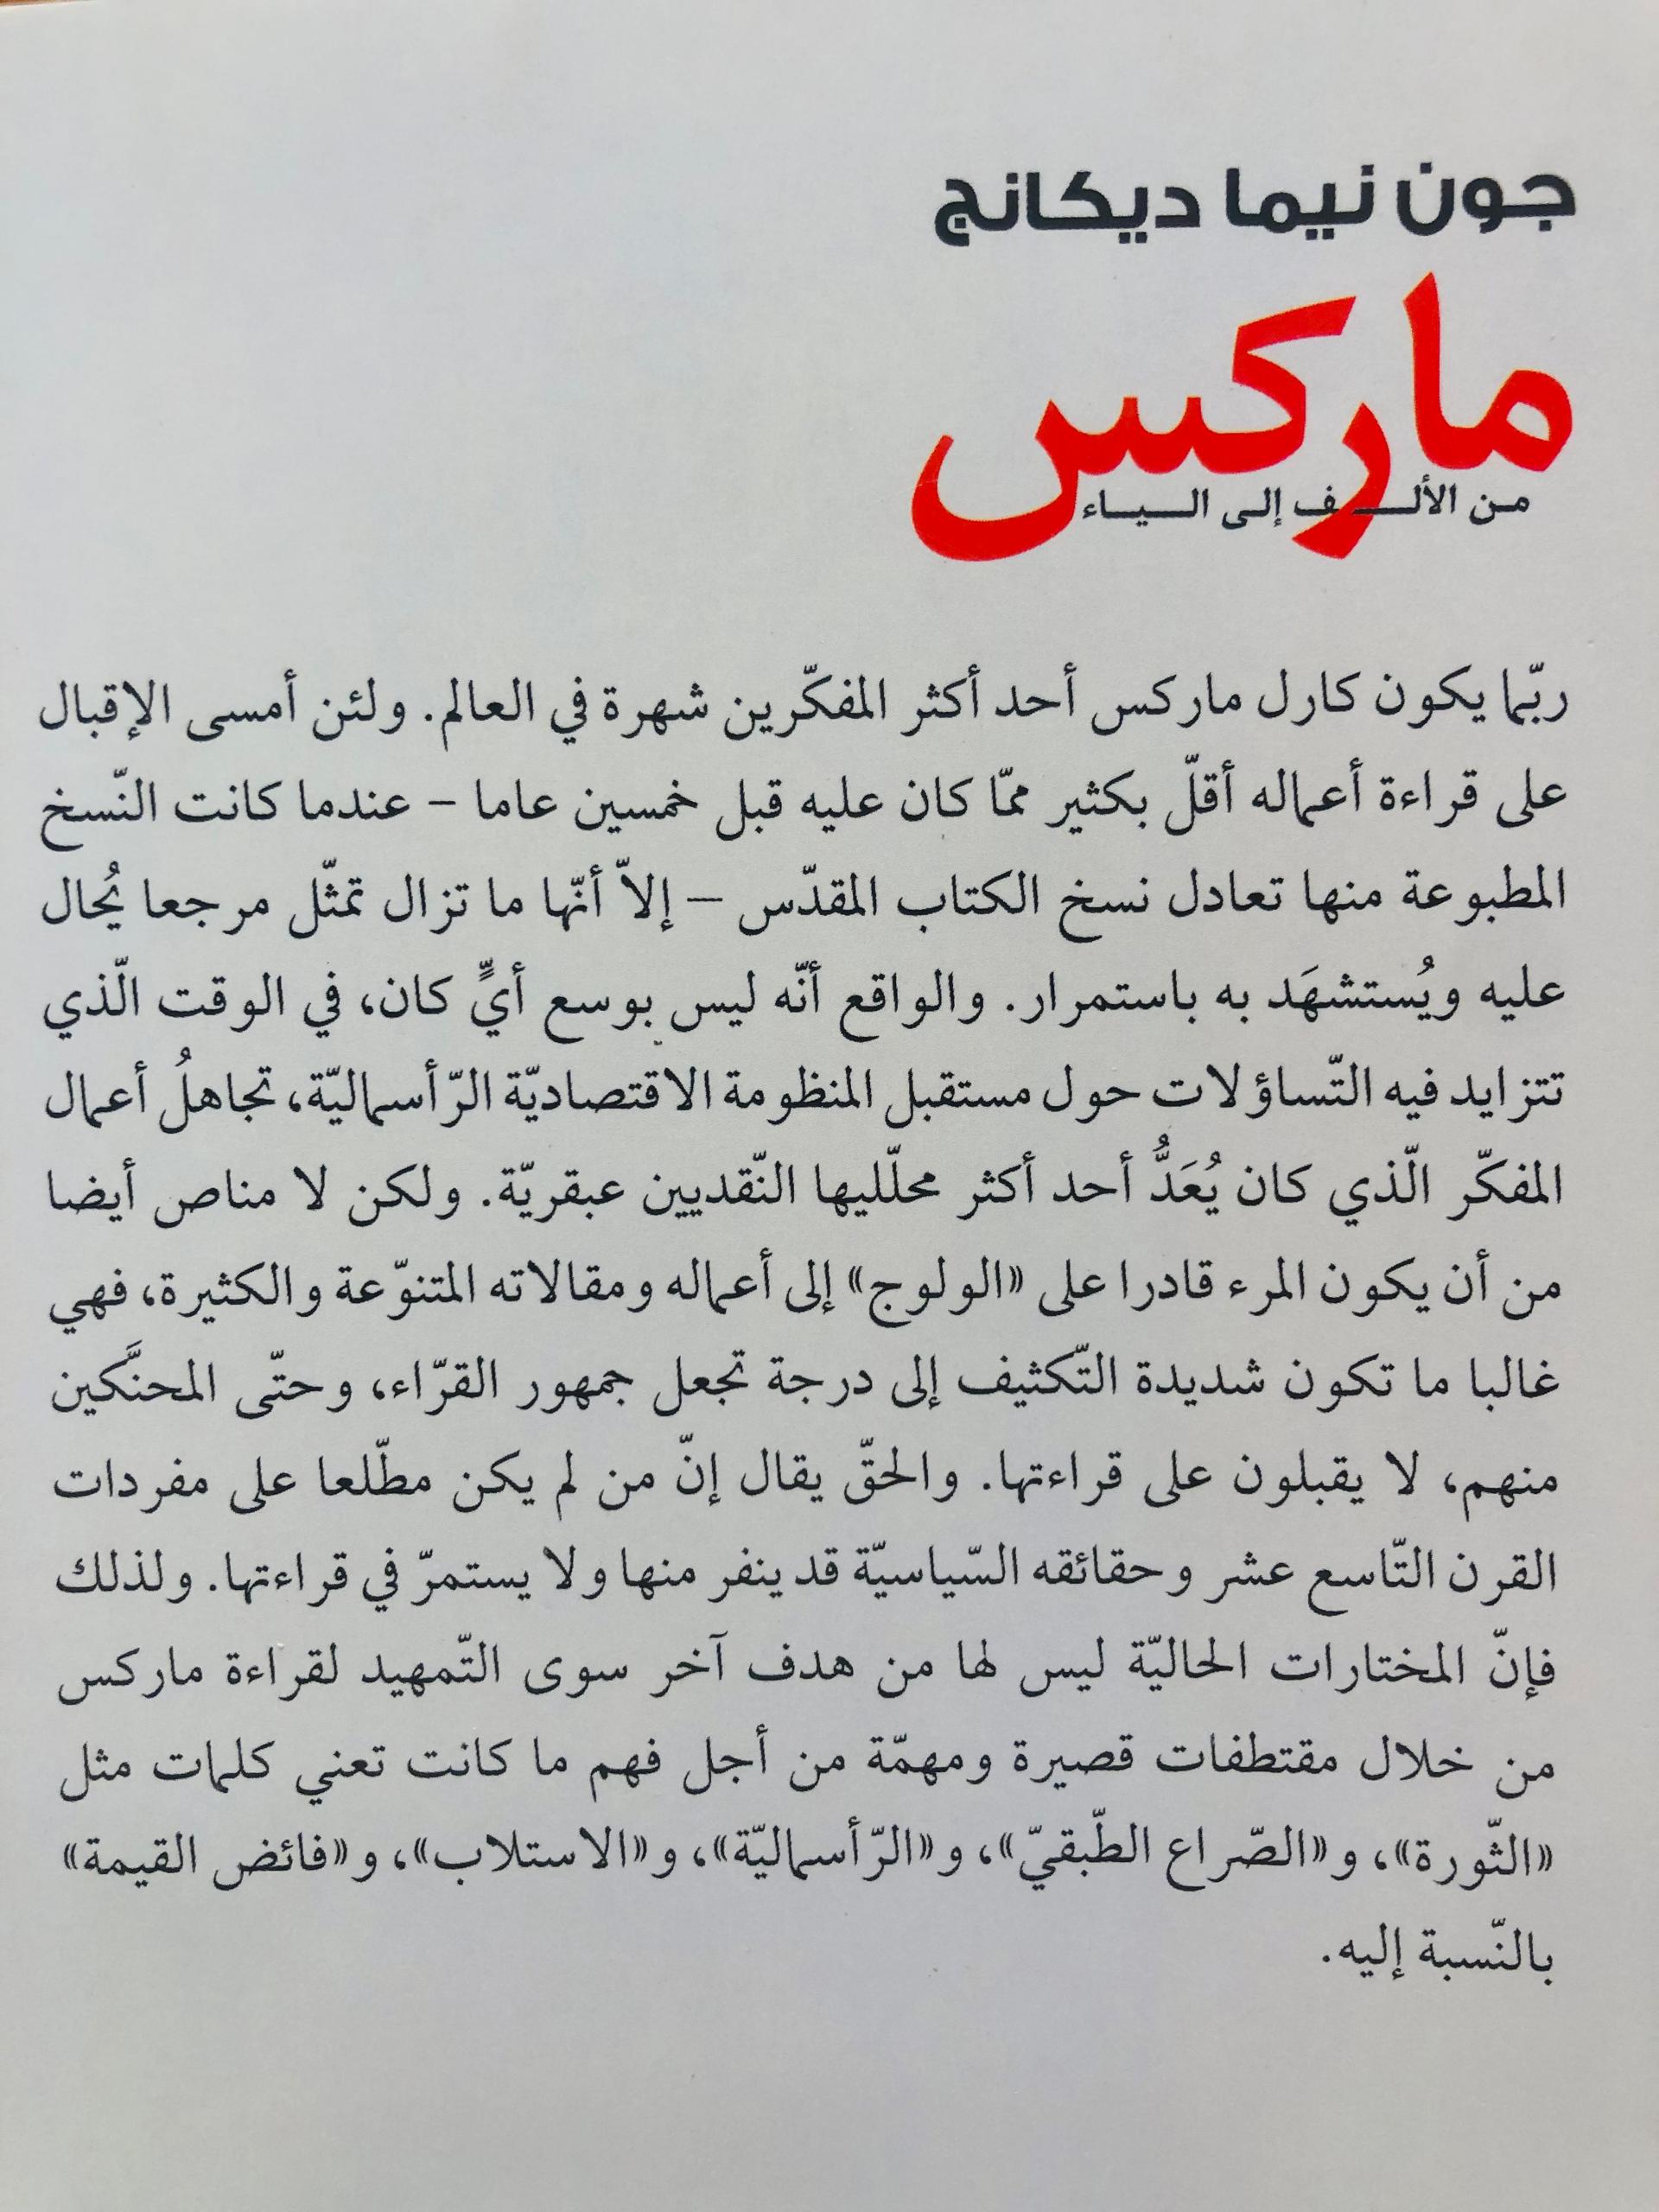 جون نيما ديكانج
ماركس
من الألف إلى الياء
ربّما يكون كارل ماركس أحد أكثر المفكّرين شهرة في العالم. ولئن أمسى الإقبال
على قراءة أعماله أقلّ بكثير ممّا كان عليه قبل خمسين عاما – عندما كانت النّسخ
المطبوعة منها تعادل نسخ الكتاب المقدّس – إلاّ أنّها ما تزال تمثّل مرجعا يُحال
عليه ويُستشهَد به باستمرار. والواقع أنّه ليس بوسع أيٍّ كان، في الوقت الّذي
تتزايد فيه التّساؤلات حول مستقبل المنظومة الاقتصاديّة الرّأسماليّة، تجاهلُ أعمال
المفكّر الّذي كان يُعَدُّ أحد أكثر محلّليها النّقديين عبقريّة. ولكن لا مناص أيضا
من أن يكون المرء قادرا على «الولوج» إلى أعماله ومقالاته المتنوّعة والكثيرة، فهي
غالبا ما تكون شديدة التّكثيف إلى درجة تجعل جمهور القرّاء، وحتّى المحنَّكين
منهم، لا يقبلون على قراءتها. والحقّ يقال إنّ من لم يكن مطّلعا على مفردات
القرن التّاسع عشر وحقائقه السّياسيّة قد ينفر منها ولا يستمرّ في قراءتها. ولذلك
فإنّ المختارات الحاليّة ليس لها من هدف آخر سوى التّمهيد لقراءة ماركس
من خلال مقتطفات قصيرة ومهمّة من أجل فهم ما كانت تعني كلمات مثل
«الثّورة»، و«الصّراع الطّبقيّ»، و«الرّأسماليّة»، و«الاستلاب»، و«فائض القيمة»
بالنّسبة إليه.